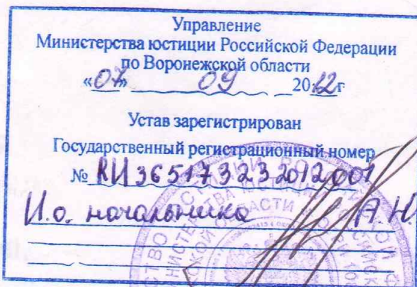 Управление
Министерства юстиции Российской Федерации
по Воронежской области
«07» 09 2012г
Устав зарегистрирован
Государственный регистрационный номер
№ RU365173232012001
И.о. начальника А.Н.